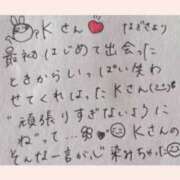 Kさん なぎさより
最初はじめて出会った
ときからいっぱい笑わ
せてくれたKさん
"頑張りすぎないように
ね"って…Kさんの
そんな一言が心に染みちゃった